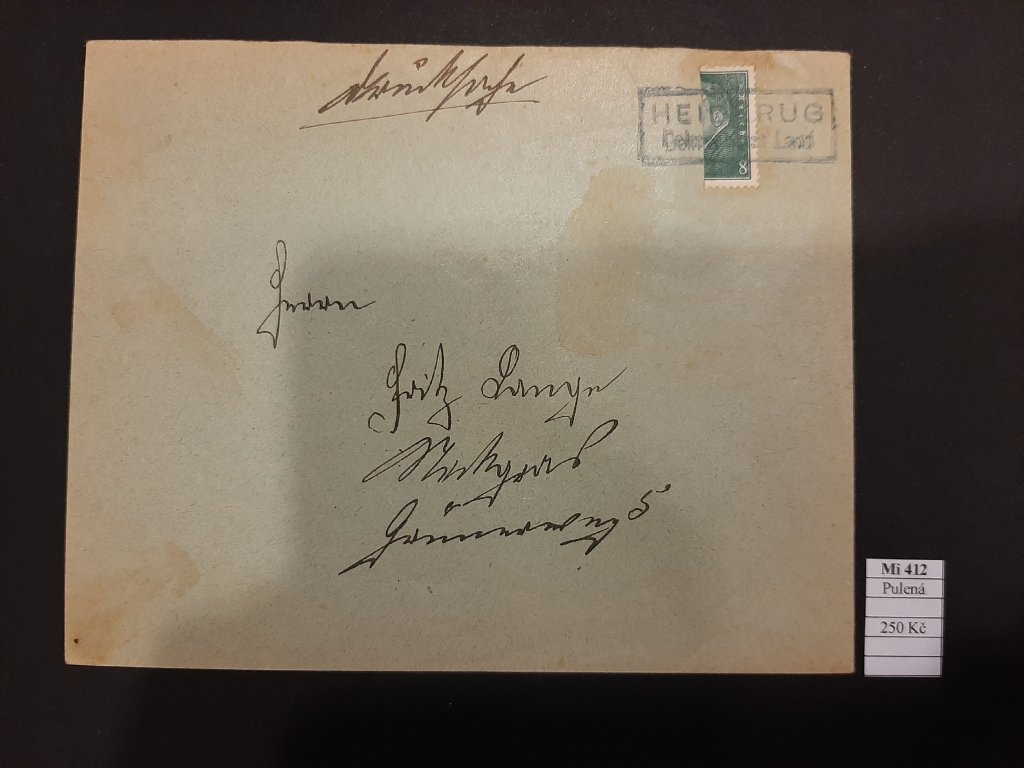 Drucksache
HEID RUG
Delme st Land
8
Herrn
Fritz Lange
Grünerweg 5
Mi 412
Pulená
250 Kč